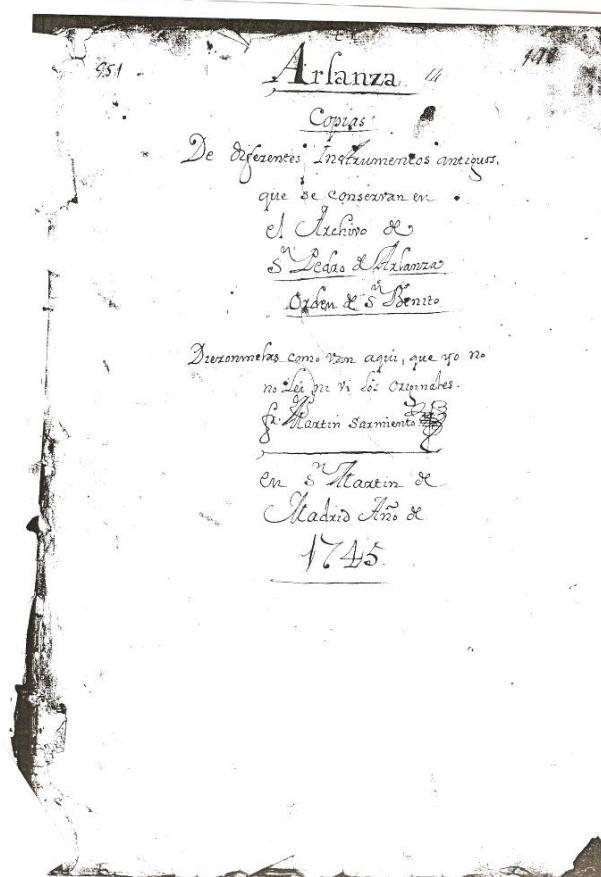 951
Arlanza
Copias
De diferentes Instrumentos antiguos,
que se conservan en
el Archivo de
Sn Pedro de Arlanza
Orden de Sn Benito
Dieronmelas como van aqui, que yo no
no Lei ni vi los Originales.
fr. Martin Sarmiento
en Sn Martin de
Madrid Año de
1745